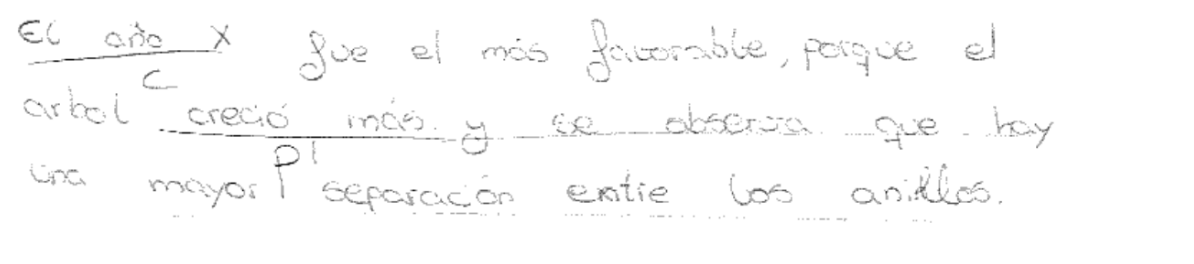 El año X fue el más favorable, porque el
C
arbol creció más y se observa que hay
P1
una mayor separación entre los anillos.